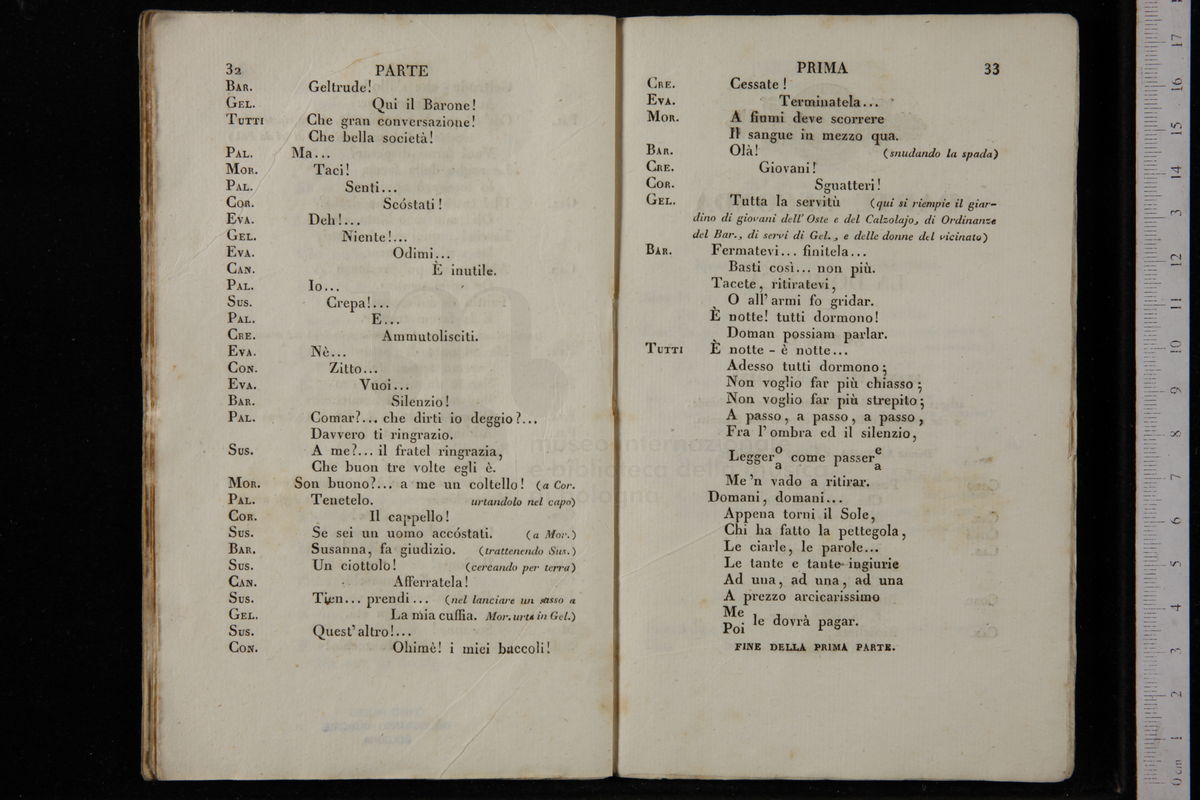 32 PARTE
BAR. Geltrude!
GEL. Qui il Barone!
TUTTI Che gran conversazione!
Che bella società!
PAL. Ma...
MOR. Taci!
PAL. Senti...
COR. Scóstati!
EVA. Deh!...
GEL. Niente!...
EVA. Odimi...
CAN. È inutile.
PAL. Io...
SUS. Crepa!...
PAL. E...
CRE. Ammutolisciti.
EVA. Nè...
CON. Zitto...
EVA. Vuoi...
BAR. Silenzio!
PAL. Comar?... che dirti io deggio?...
Davvero ti ringrazio.
SUS. A me?... il fratel ringrazia,
Che buon tre volte egli è.
MOR. Son buono?... a me un coltello! (a Cor.
PAL. Tenetelo. urtandolo nel capo)
COR. Il cappello!
SUS. Se sei un uomo accóstati. (a Mor.)
BAR. Susanna, fa giudizio. (trattenendo Sus.)
SUS. Un ciottolo! (cercando per terra)
CAN. Afferratela!
SUS. Tien... prendi... (nel lanciare un sasso a
GEL. La mia cuffia. Mor. urta in Gel.)
SUS. Quest' altro!...
CON. Ohimè! i miei baccoli!
PRIMA 33
CRE. Cessate!
EVA. Terminatela...
MOR. A fiumi deve scorrere
Il sangue in mezzo qua.
BAR. Olà! (snudando la spada)
CRE. Giovani!
COR. Sguatteri!
GEL. Tutta la servitù (qui si riempie il giar-
dino di giovani dell' Oste e del Calzolajo, di Ordinanze
del Bar., di servi di Gel., e delle donne del vicinato)
BAR. Fermatevi... finitela...
Basti così... non più.
Tacete, ritiratevi,
O all' armi fo gridar.
È notte! tutti dormono!
Doman possiam parlar.
TUTTI È notte - è notte...
Adesso tutti dormono;
Non voglio far più chiasso;
Non voglio far più strepito;
A passo, a passo, a passo,
Fra l' ombra ed il silenzio,
Legger o a come passer e a
Me 'n vado a ritirar.
Domani, domani...
Appena torni il Sole,
Chi ha fatto la pettegola,
Le ciarle, le parole...
Le tante e tante ingiurie
Ad una, ad una, ad una
A prezzo arcicarissimo
Me
Poi le dovrà pagar.
FINE DELLA PRIMA PARTE.
museo internazionale
e biblioteca della musica
bologna
0 cm 1 2 3 4 5 6 7 8 9 10 11 12 13 14 15 16 17